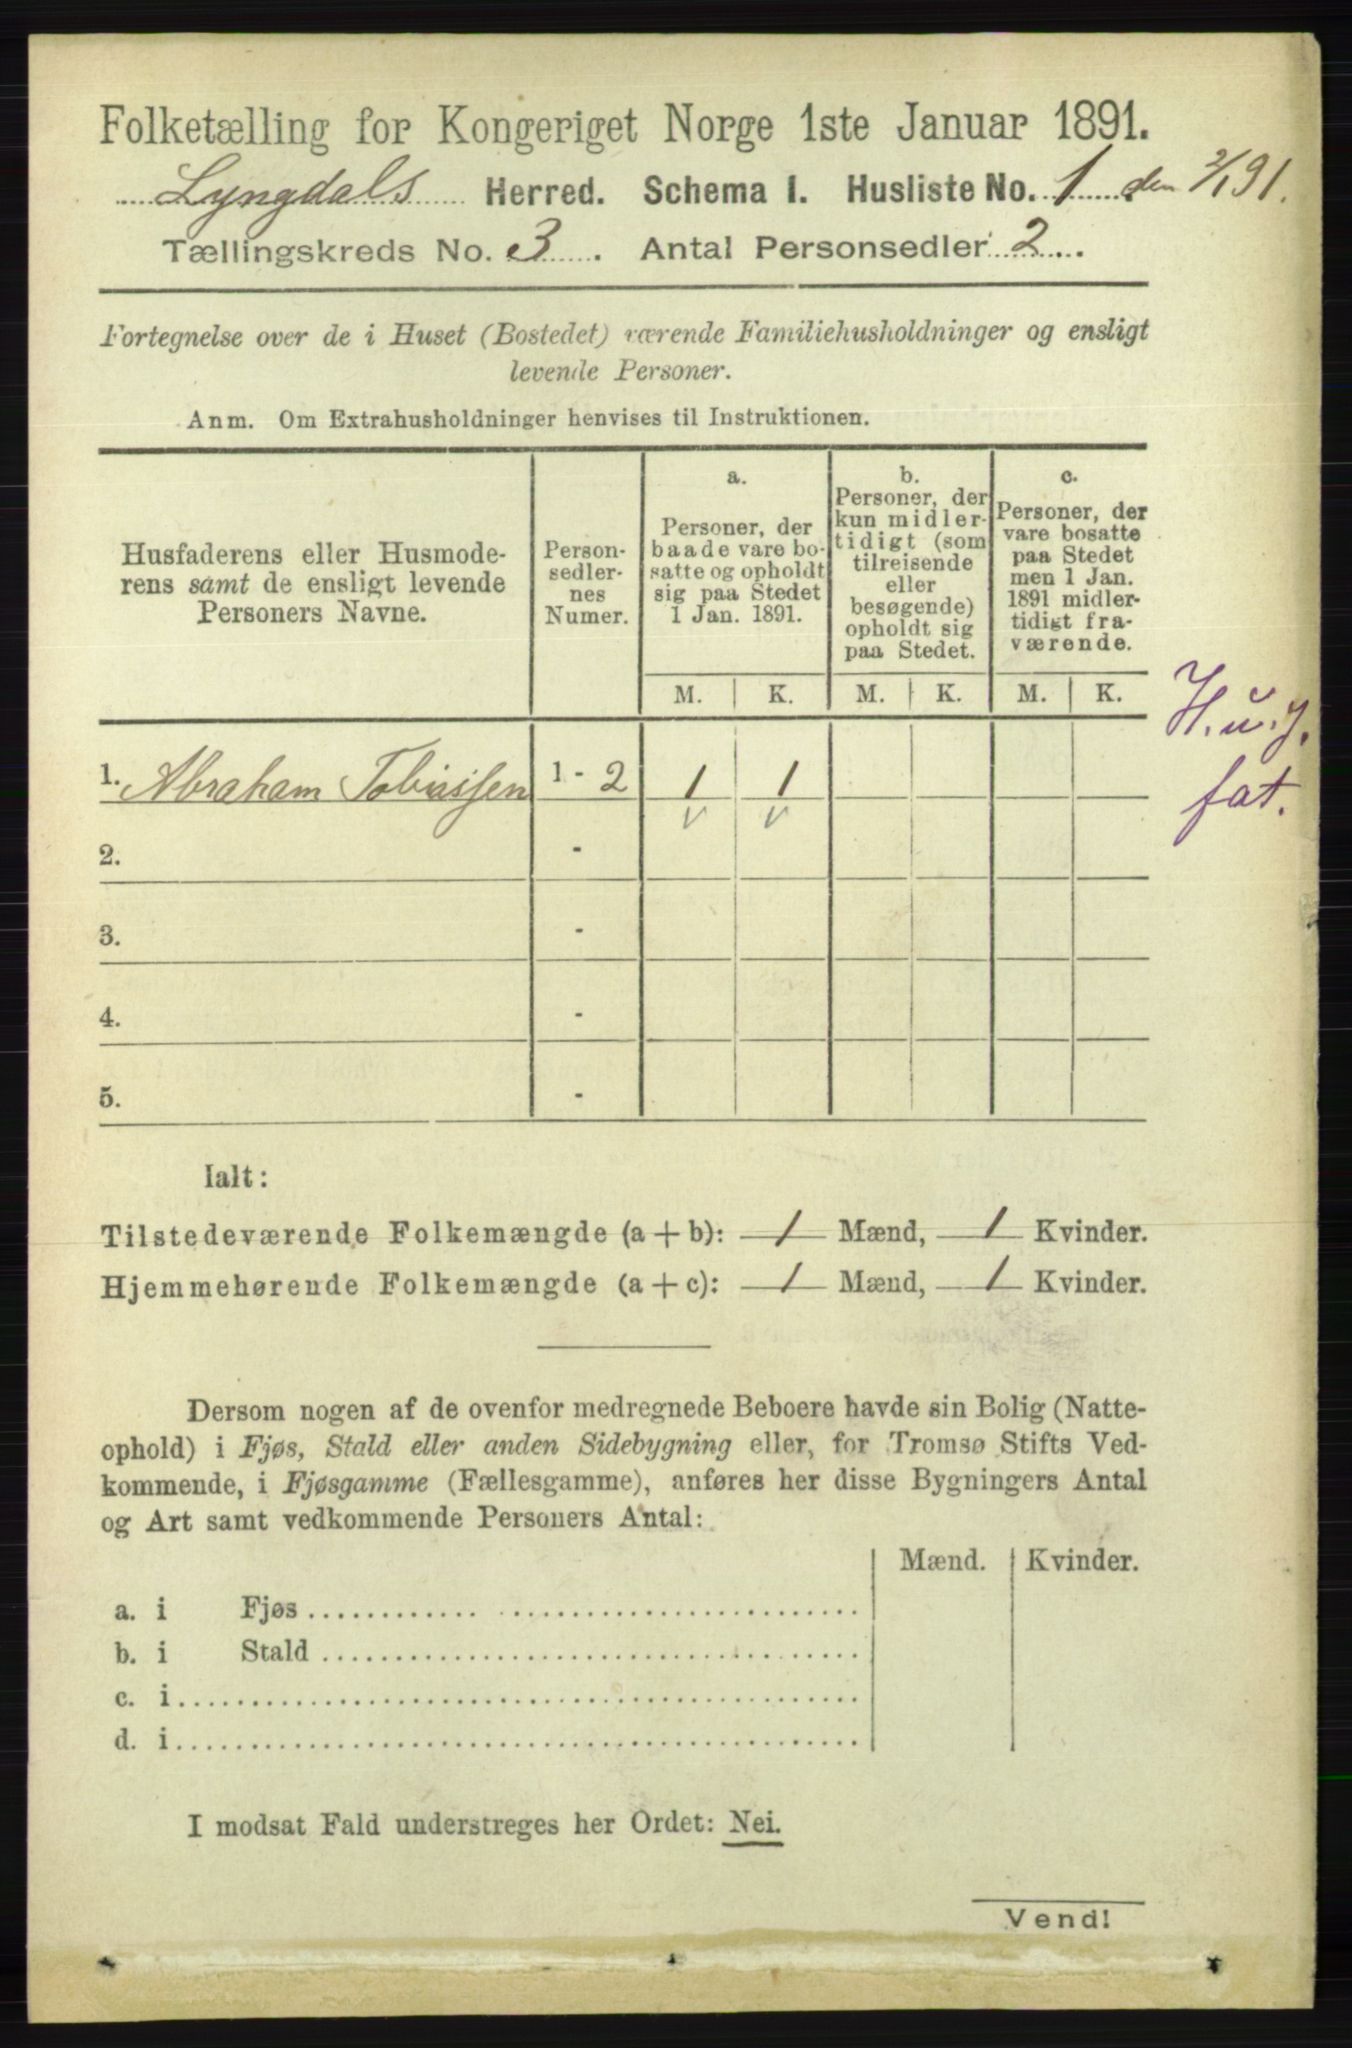 Folketælling for Kongeriget Norge 1ste Januar 1891.
Lyngdals Herred. Schema I. Husliste No. 1 den 2/1 91.
Tællingskreds No. 3. Antal Personsedler 2.
Fortegnelse over de i Huset (Bostedet) værende Familiehusholdninger og ensligt
levende Personer.
Anm. Om Extrahusholdninger henvises til Instruktionen.
Husfaderens eller Husmode-
rens samt de ensligt levende
Personers Navne.
Person-
sedler-
nes
Numer.
a.
Personer, der
baade vare bo-
satte og opholdt
sig paa Stedet
1 Jan. 1891.
b.
Personer, der
kun midler-
tidigt (som
tilreisende
eller
besøgende)
opholdt sig
paa Stedet.
c.
Personer, der
vare bosatte
paa Stedet
men 1 Jan.
1891 midler-
tidigt fra-
værende.
M. K. M. K. M. K.
1. Abraham Tobiassen 1 - 2 1 1
v v
H. u. j.
fat.
2. -
3. -
4. -
5. -
Ialt:
Tilstedeværende Folkemængde (a + b): 1 Mænd, 1 Kvinder.
Hjemmehørende Folkemængde (a + c): 1 Mænd, 1 Kvinder.
Dersom nogen af de ovenfor medregnede Beboere havde sin Bolig (Natte-
ophold) i Fjøs, Stald eller anden Sidebygning eller, for Tromsø Stifts Ved-
kommende, i Fjøsgamme (Fællesgamme), anføres her disse Bygningers Antal
og Art samt vedkommende Personers Antal:
Mænd. Kvinder.
a. i Fjøs
b. i Stald
c. i
d. i
I modsat Fald understreges her Ordet: Nei.
Vend!